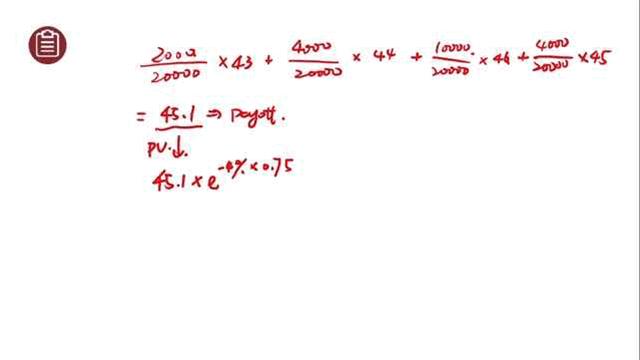 2000/20000 × 43 + 4000/20000 × 44 + 10000/20000 × 46 + 4000/20000 × 45
= 45.1 ⇒ payoff.
PV. ↓.
45.1 × e^-4% × 0.75